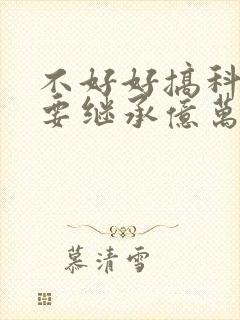 不好好搞科
要继承億萬
慕清雪